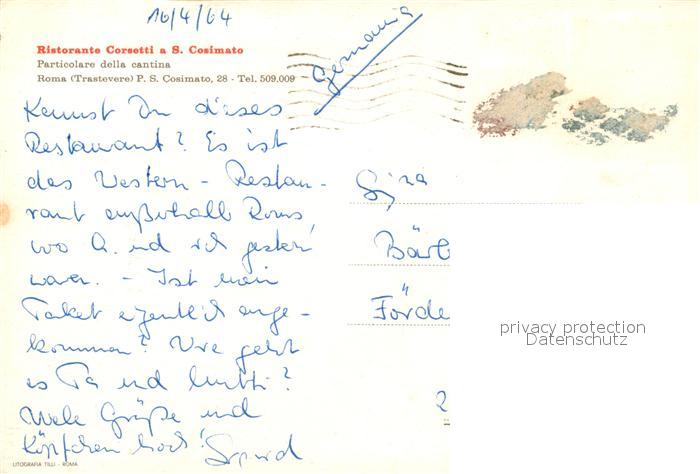 16/4/64
Ristorante Corsetti a S. Cosimato
Particolare della cantina
Roma (Trastevere) P. S. Cosimato, 28 - Tel. 509.009
Germania
Kennst Du dieses
Restaurant? Es ist
das Western - Restau-
rant außerhalb Roms,
wo A. und ich gestern
waren. - Ist mein
Paket eigentlich ange-
kommen? Wie geht
es Pa und Mutti?
Viele Grüße und
Köpfchen hoch!
Sgra
Bärb
Förde
2
privacy protection
Datenschutz
LITOGRAFIA TILLI - ROMA